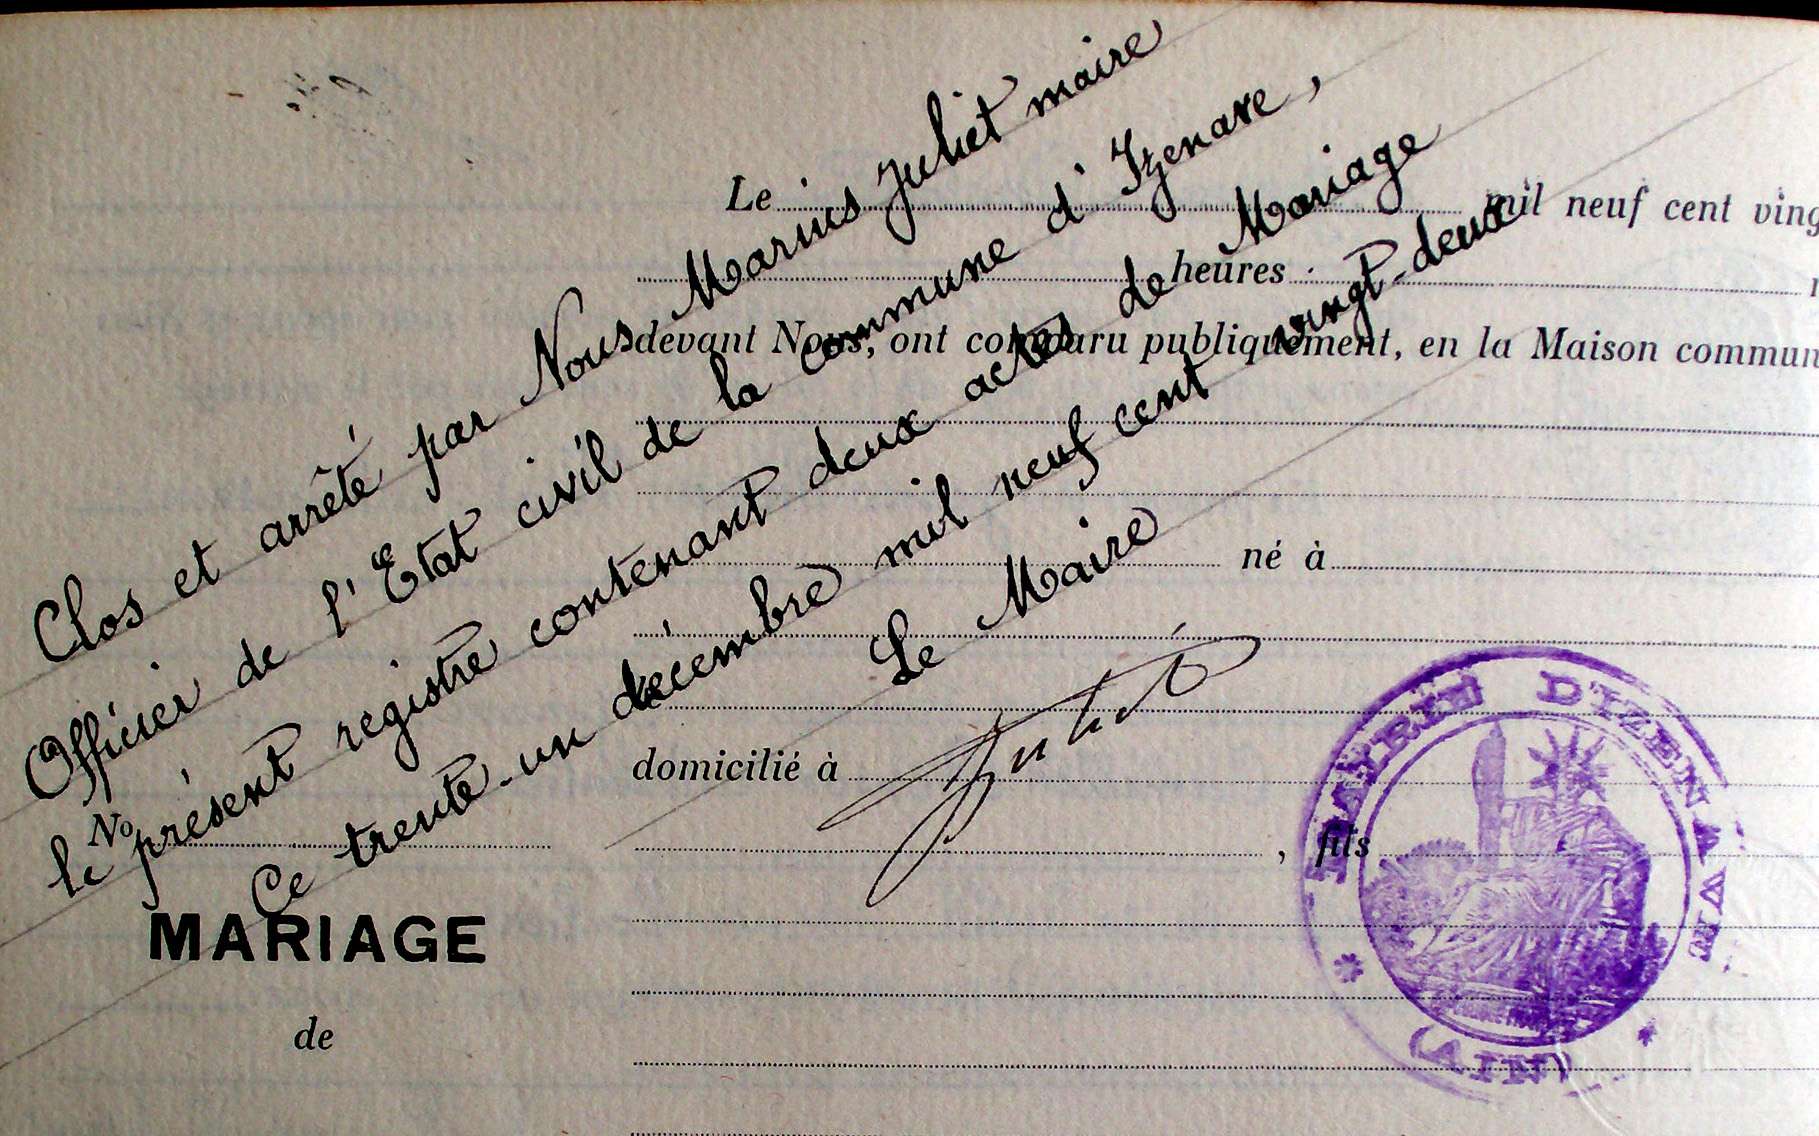 Clos et arrêté par Nous Marius Juliet maire
Officier de l'Etat civil de la commune d'Izenave,
le présent registre contenant deux actes de Mariage
Ce trente-un décembre mil neuf cent vingt-deux
Le Maire
Juliet
Le mil neuf cent ving
heures
devant Nous, ont comparu publiquement, en la Maison commun
né à
domicilié à
, fils
No
MARIAGE
de
MAIRIE D'IZENAVE
(AIN)